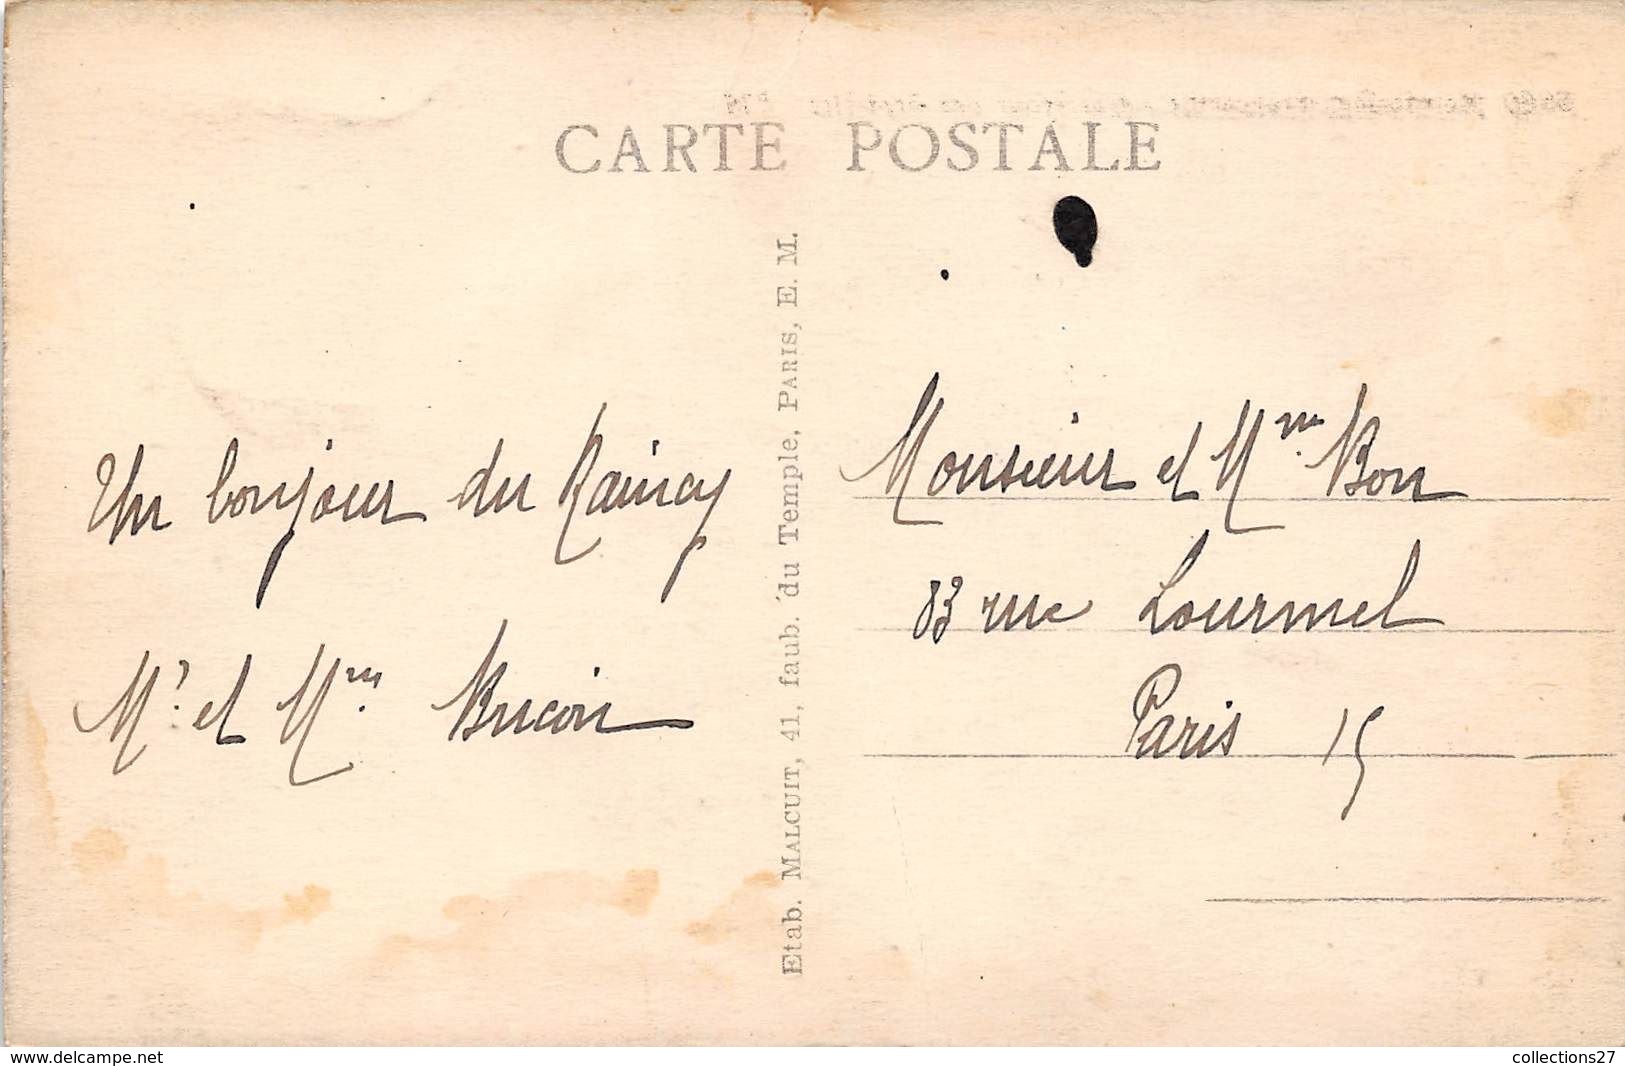 CARTE POSTALE
Un bonjour du Raincy
Mr. et Mme. Bucoin
Etab. MALCUIT, 41, faub. du Temple, PARIS, E. M.
Monsieur et Mme. Bon
83 rue Lourmel
Paris 15
www.delcampe.net
collections27